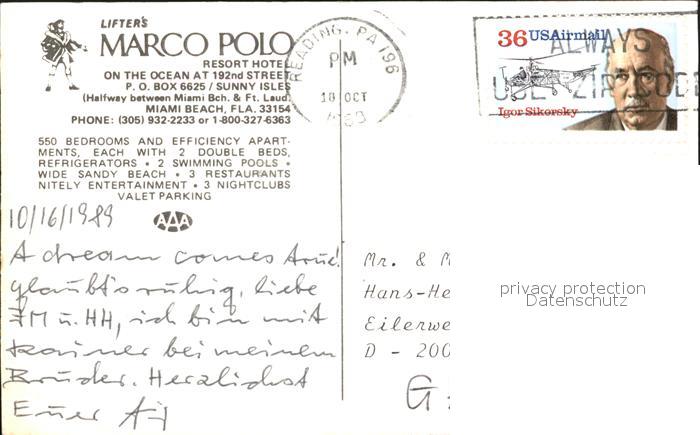 LIFTER'S
MARCO POLO
RESORT HOTEL
ON THE OCEAN AT 192nd STREET
P. O. BOX 6625 / SUNNY ISLES
(Halfway between Miami Bch. & Ft. Laud.
MIAMI BEACH, FLA. 33154
PHONE: (305) 932-2233 or 1-800-327-6363
550 BEDROOMS AND EFFICIENCY APART-
MENTS, EACH WITH 2 DOUBLE BEDS,
REFRIGERATORS • 2 SWIMMING POOLS •
WIDE SANDY BEACH • 3 RESTAURANTS
NITELY ENTERTAINMENT • 3 NIGHTCLUBS
VALET PARKING
AAA
10/16/1989
A dream comes true!
glaubt's ruhig, liebe
FM u. HH, ich bin mit
Rainer bei meinem
Bruder. Herzlichst
Euer
READING, PA 196
PM
18 OCT
1989
ALWAYS
USE ZIP CODE
36 USAirmail
Igor Sikorsky
Mr. & M
Hans-He
Eilerwe
D - 200
G
privacy protection
Datenschutz